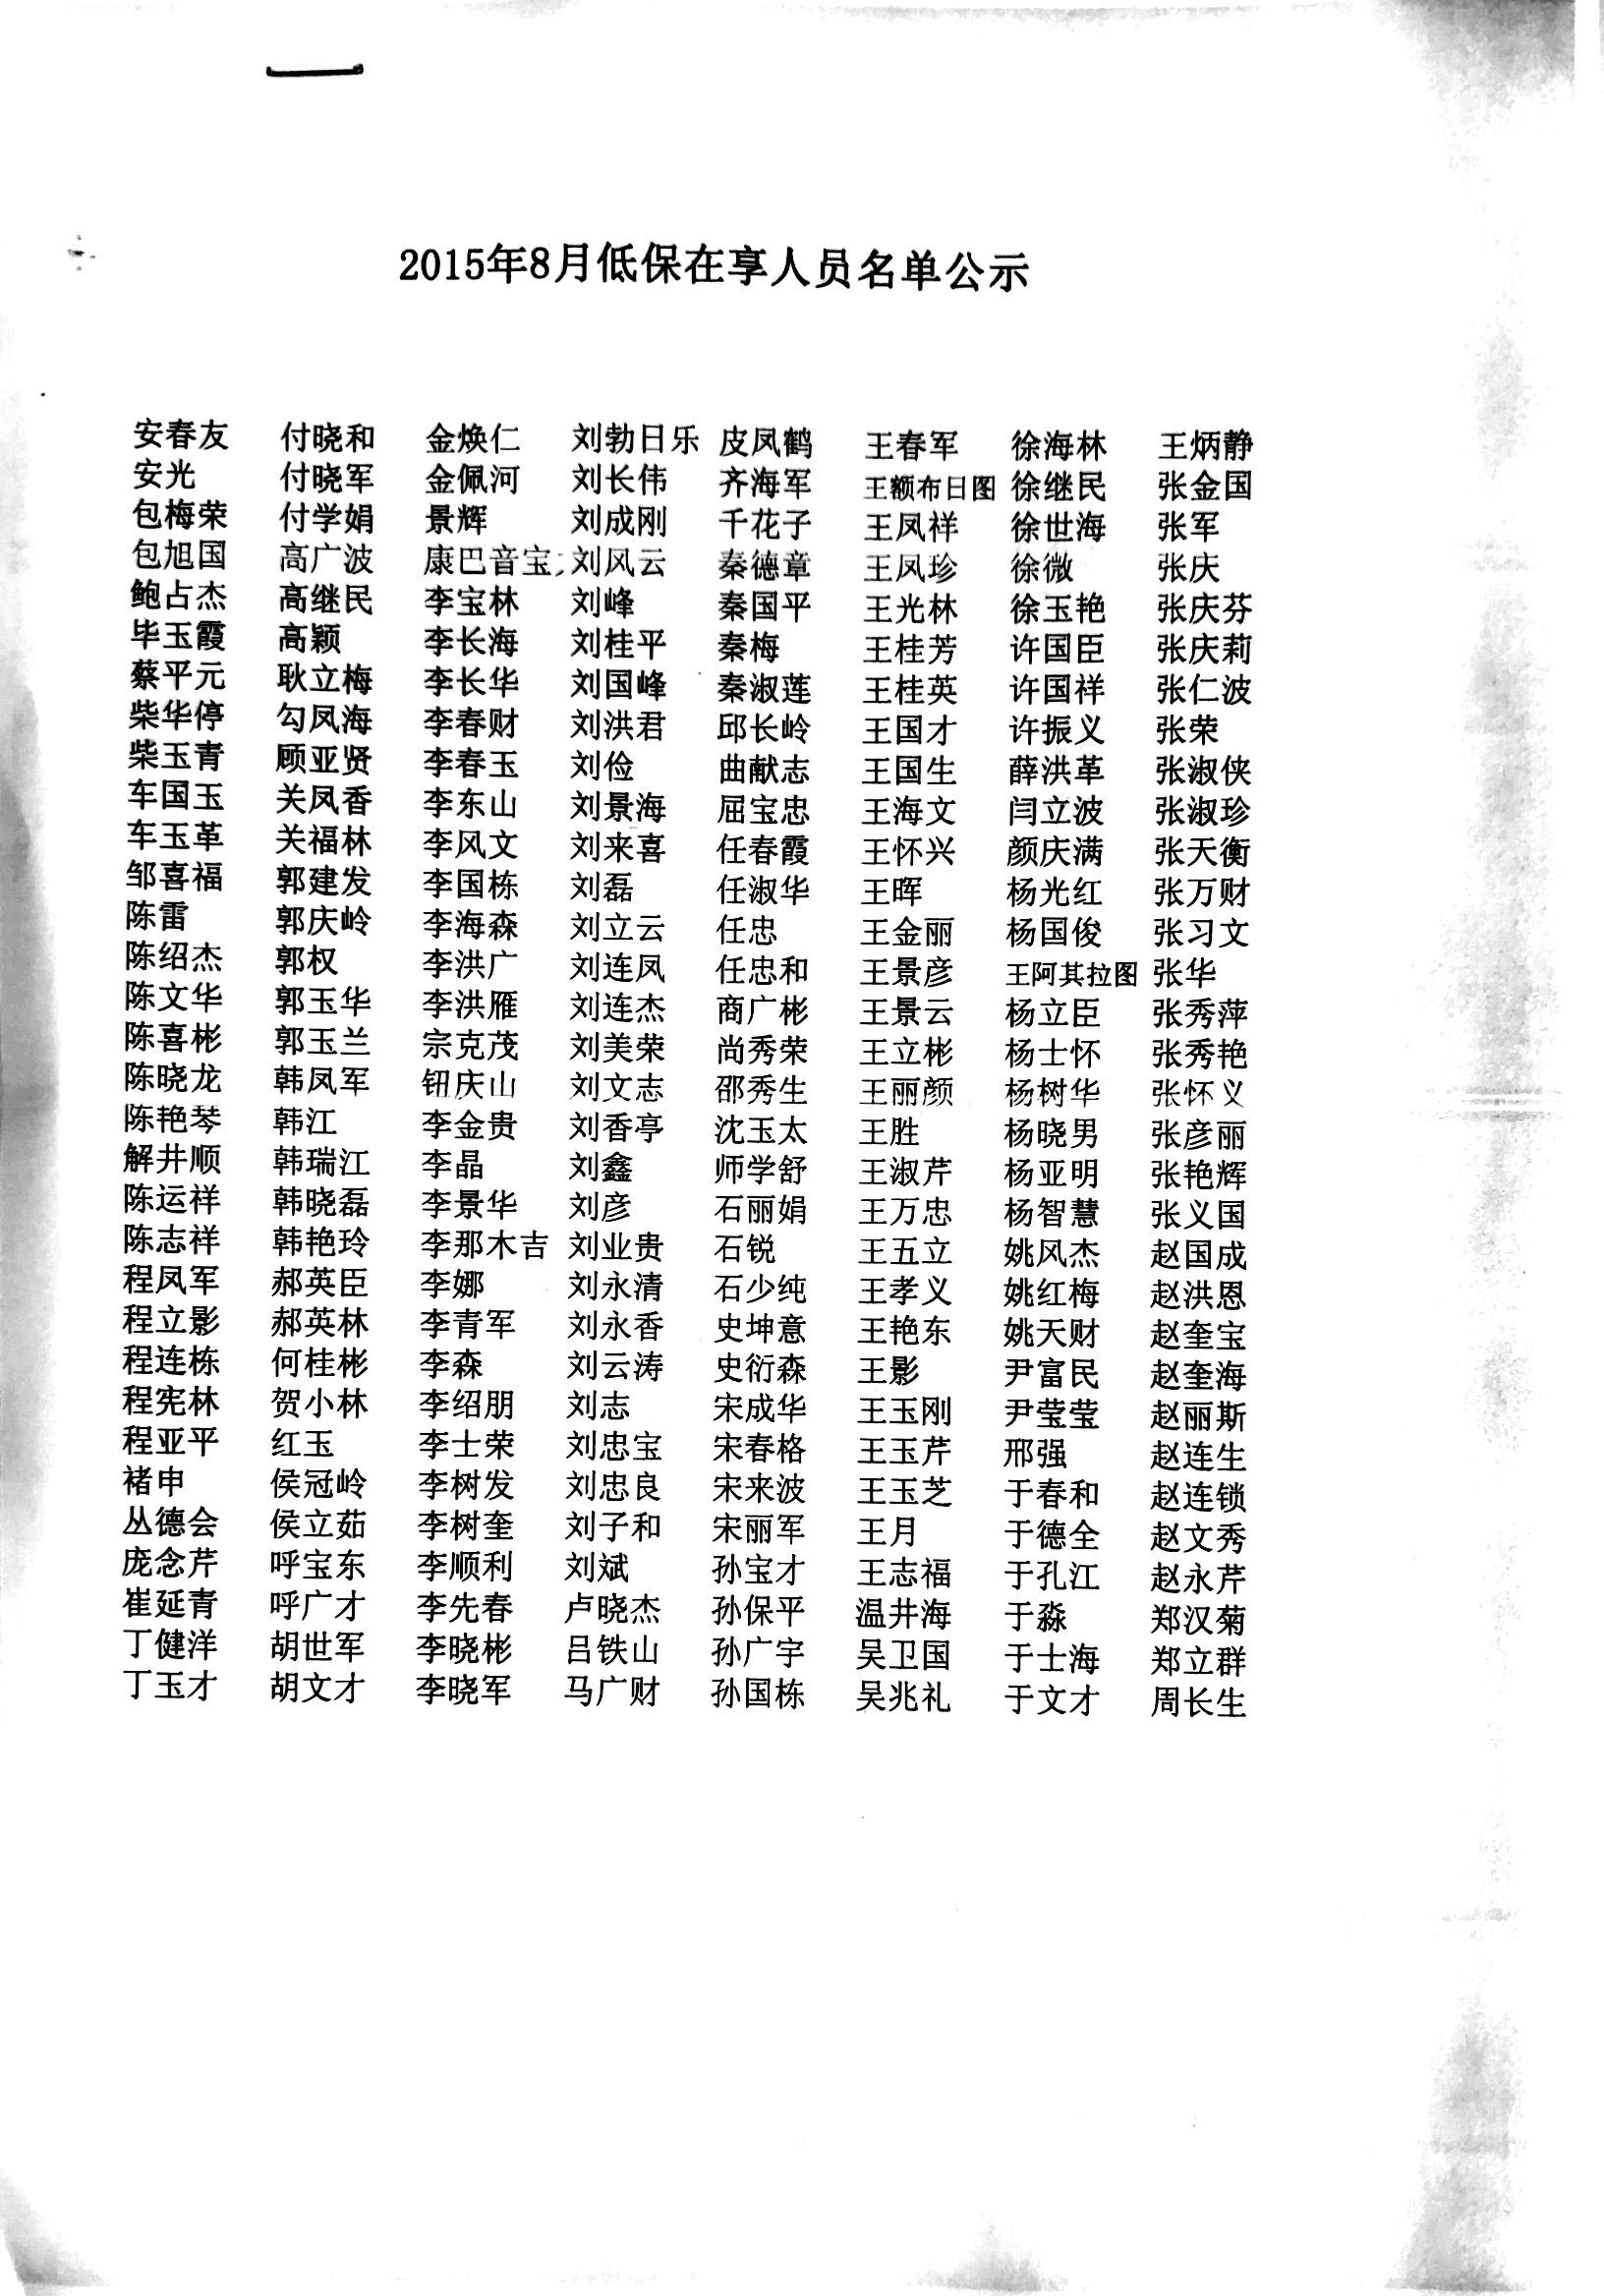 2015年8月低保在享人员名单公示
安春友 付晓和 金焕仁 刘勃日乐 皮凤鹤 王春军 徐海林 王炳静
安光 付晓军 金佩河 刘长伟 齐海军 王额布日图 徐继民 张金国
包梅荣 付学娟 景辉 刘成刚 千花子 王凤祥 徐世海 张军
包旭国 高广波 康巴音宝 刘风云 秦德章 王凤珍 徐微 张庆
鲍占杰 高继民 李宝林 刘峰 秦国平 王光林 徐玉艳 张庆芬
毕玉霞 高颖 李长海 刘桂平 秦梅 王桂芳 许国臣 张庆莉
蔡平元 耿立梅 李长华 刘国峰 秦淑莲 王桂英 许国祥 张仁波
柴华停 勾凤海 李春财 刘洪君 邱长岭 王国才 许振义 张荣
柴玉青 顾亚贤 李春玉 刘俭 曲献志 王国生 薛洪革 张淑侠
车国玉 关凤香 李东山 刘景海 屈宝忠 王海文 闫立波 张淑珍
车玉革 关福林 李风文 刘来喜 任春霞 王怀兴 颜庆满 张天衡
邹喜福 郭建发 李国栋 刘磊 任淑华 王晖 杨光红 张万财
陈雷 郭庆岭 李海森 刘立云 任忠 王金丽 杨国俊 张习文
陈绍杰 郭权 李洪广 刘连凤 任忠和 王景彦 王阿其拉图 张华
陈文华 郭玉华 李洪雁 刘连杰 商广彬 王景云 杨立臣 张秀萍
陈喜彬 郭玉兰 宗克茂 刘美荣 尚秀荣 王立彬 杨士怀 张秀艳
陈晓龙 韩凤军 钮庆山 刘文志 邵秀生 王丽颜 杨树华 张怀义
陈艳琴 韩江 李金贵 刘香亭 沈玉太 王胜 杨晓男 张彦丽
解井顺 韩瑞江 李晶 刘鑫 师学舒 王淑芹 杨亚明 张艳辉
陈运祥 韩晓磊 李景华 刘彦 石丽娟 王万忠 杨智慧 张义国
陈志祥 韩艳玲 李那木吉 刘业贵 石锐 王五立 姚风杰 赵国成
程凤军 郝英臣 李娜 刘永清 石少纯 王孝义 姚红梅 赵洪恩
程立影 郝英林 李青军 刘永香 史坤意 王艳东 姚天财 赵奎宝
程连栋 何桂彬 李森 刘云涛 史衍森 王影 尹富民 赵奎海
程宪林 贺小林 李绍朋 刘志 宋成华 王玉刚 尹莹莹 赵丽斯
程亚平 红玉 李士荣 刘忠宝 宋春格 王玉芹 邢强 赵连生
褚申 侯冠岭 李树发 刘忠良 宋来波 王玉芝 于春和 赵连锁
丛德会 侯立茹 李树奎 刘子和 宋丽军 王月 于德全 赵文秀
庞念芹 呼宝东 李顺利 刘斌 孙宝才 王志福 于孔江 赵永芹
崔延青 呼广才 李先春 卢晓杰 孙保平 温井海 于淼 郑汉菊
丁健洋 胡世军 李晓彬 吕铁山 孙广宇 吴卫国 于士海 郑立群
丁玉才 胡文才 李晓军 马广财 孙国栋 吴兆礼 于文才 周长生